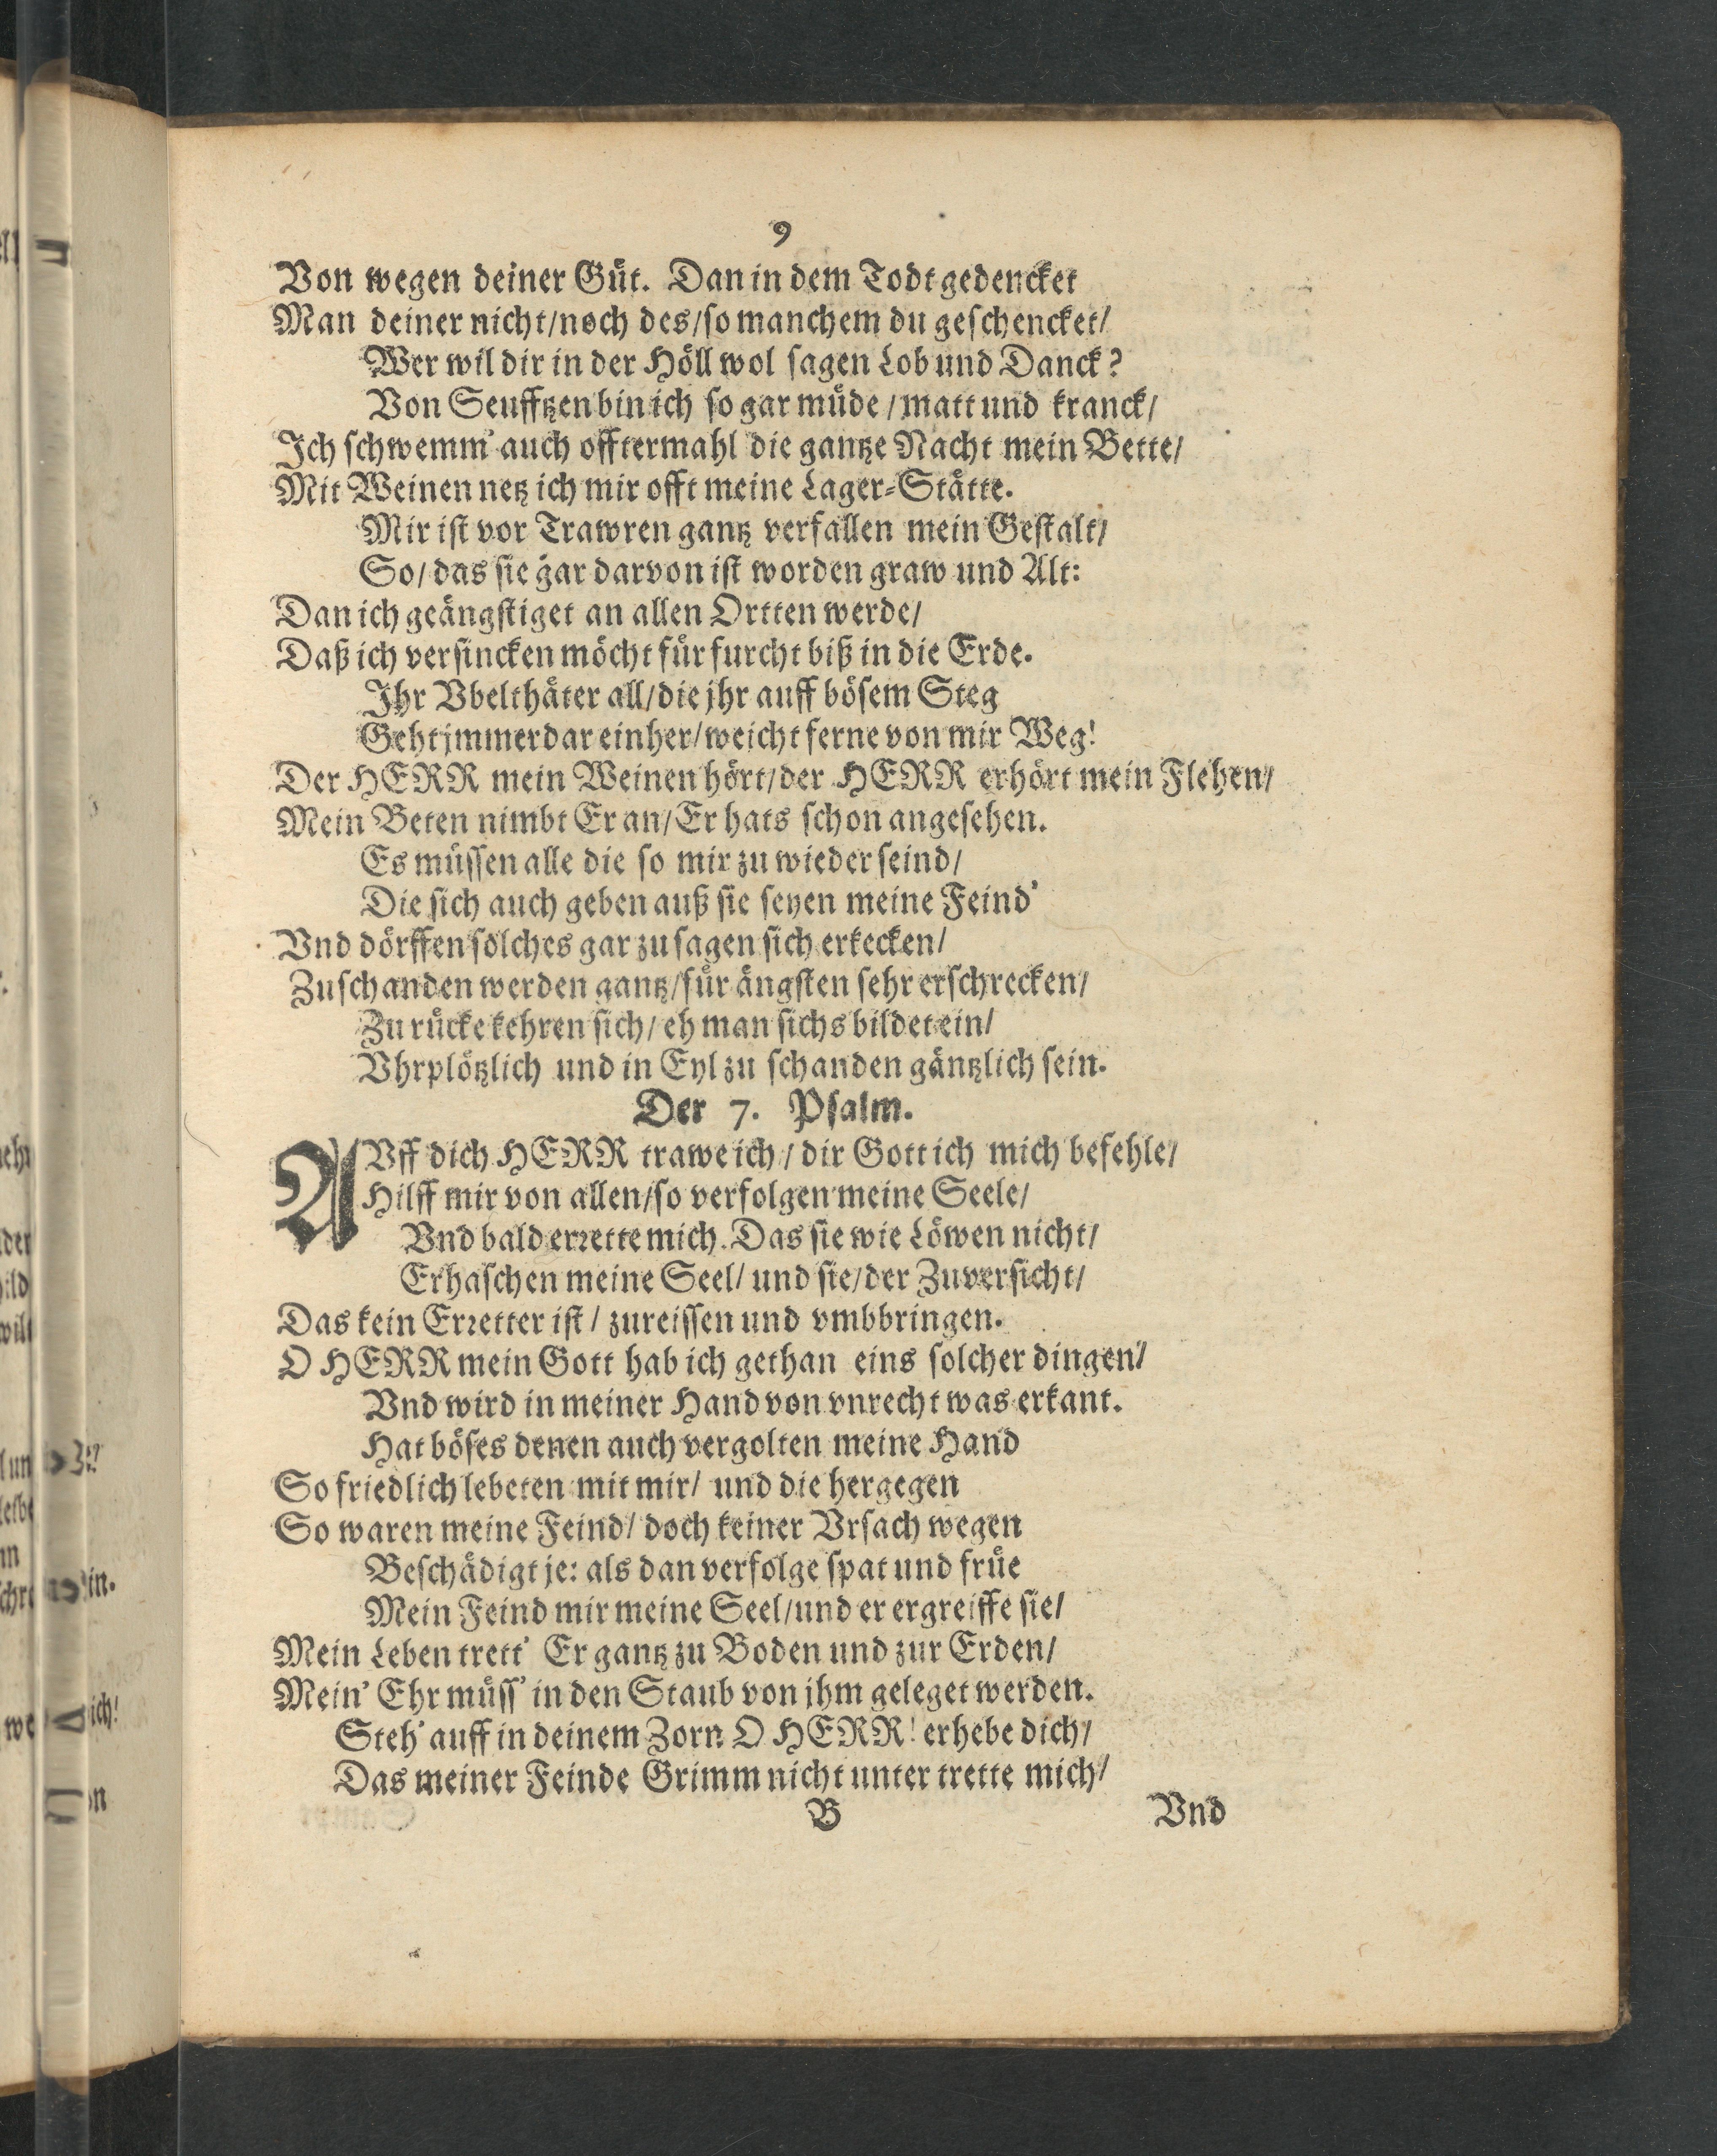 9
Von wegen deiner Güt. Dan in dem Todt gedencket
Man deiner nicht/noch des/so manchem du geschencket/
Wer wil dir in der Höll wol sagen Lob und Danck?
Von Seufftzen bin ich so gar müde/matt und kranck/
Ich schwemm' auch offtermahl die gantze Nacht mein Bette/
Mit Weinen netz ich mir offt meine Lager-Stätte.
Mir ist vor Trawren gantz verfallen mein Gestalt/
So/das sie gar darvon ist worden graw und Alt:
Dan ich geängstiget an allen Ortten werde/
Daß ich versincken möcht für furcht biß in die Erde.
Ihr Vbelthäter all/die jhr auff bösem Steg
Geht jmmerdar einher/weicht ferne von mir Weg!
Der HERR mein Weinen hört/der HERR erhört mein Flehen/
Mein Beten nimbt Er an/Er hats schon angesehen.
Es müssen alle die so mir zu wieder seind/
Die sich auch geben auß sie seyen meine Feind'
Vnd dörffen solches gar zu sagen sich erkecken/
Zuschanden werden gantz/für ängsten sehr erschrecken/
Zu rücke kehren sich/eh man sichs bildet ein/
Vhrplötzlich und in Eyl zu schanden gäntzlich sein.
Der 7. Psalm.
AVff dich HERR trawe ich/dir Gott ich mich befehle/
Hilff mir von allen/so verfolgen meine Seele/
Vnd bald errette mich. Das sie wie Löwen nicht/
Erhaschen meine Seel/und sie/der Zuversicht/
Das kein Erretter ist/zureissen und vmbbringen.
O HERR mein Gott hab ich gethan eins solcher dingen/
Vnd wird in meiner Hand von vnrecht was erkant.
Hat böses denen auch vergolten meine Hand
So friedlich lebeten mit mir/und die hergegen
So waren meine Feind/doch keiner Vrsach wegen
Beschädigt je: als dan verfolge spat und früe
Mein Feind mir meine Seel/und er ergreiffe sie/
Mein Leben trett' Er gantz zu Boden und zur Erden/
Mein' Ehr müss' in den Staub von jhm geleget werden.
Steh' auff in deinem Zorn O HERR! erhebe dich/
Das meiner Feinde Grimm nicht unter trette mich/
B Vnd